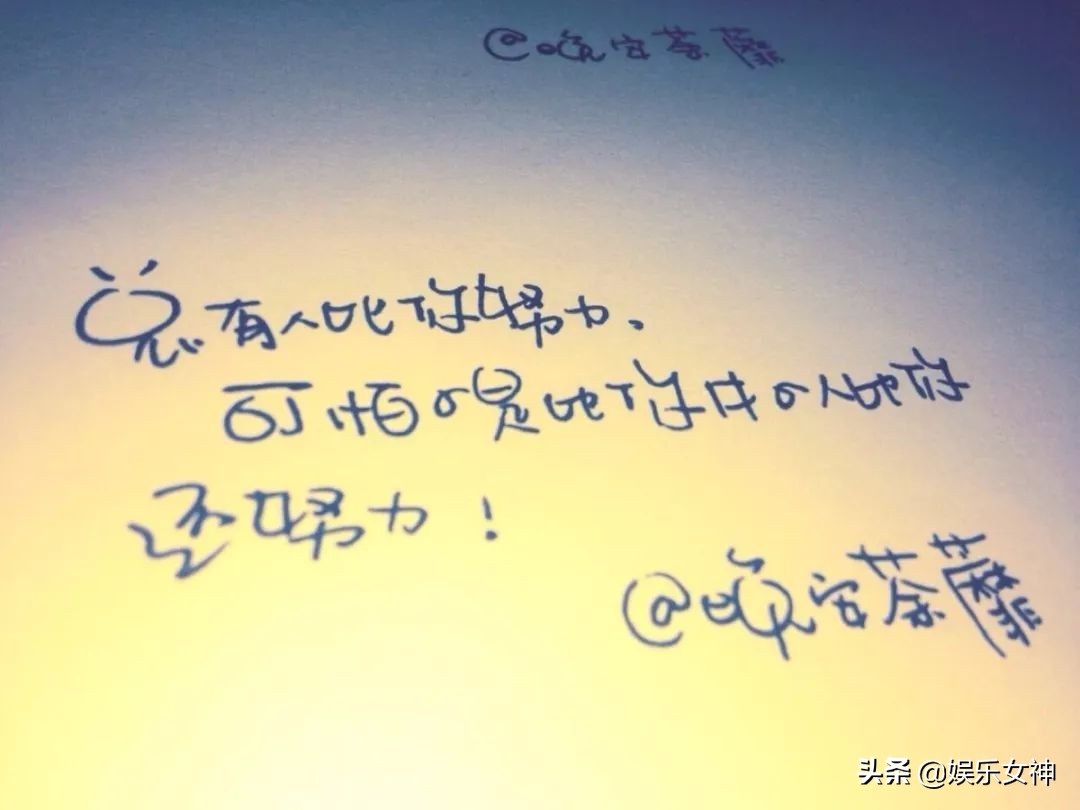 @晚安荼蘼
总有人比你努力,
可怕的是比你牛的人比你
还努力!
@晚安荼蘼
头条 @娱乐女神